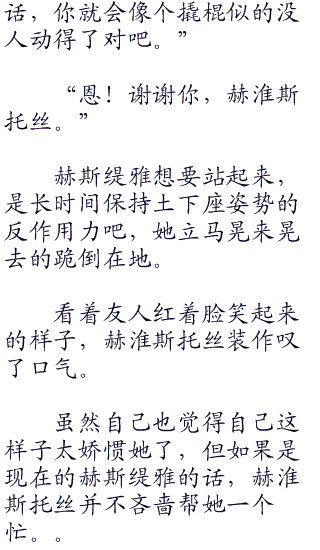 话，你就会像个撬棍似的没
人动得了对吧。”
“恩！谢谢你，赫淮斯
托丝。”
赫斯缇雅想要站起来，
是长时间保持土下座姿势的
反作用力吧，她立马晃来晃
去的跪倒在地。
看着友人红着脸笑起来
的样子，赫淮斯托丝装作叹
了口气。
虽然自己也觉得自己这
样子太娇惯她了，但如果是
现在的赫斯缇雅的话，赫淮
斯托丝并不吝啬帮她一个
忙。。